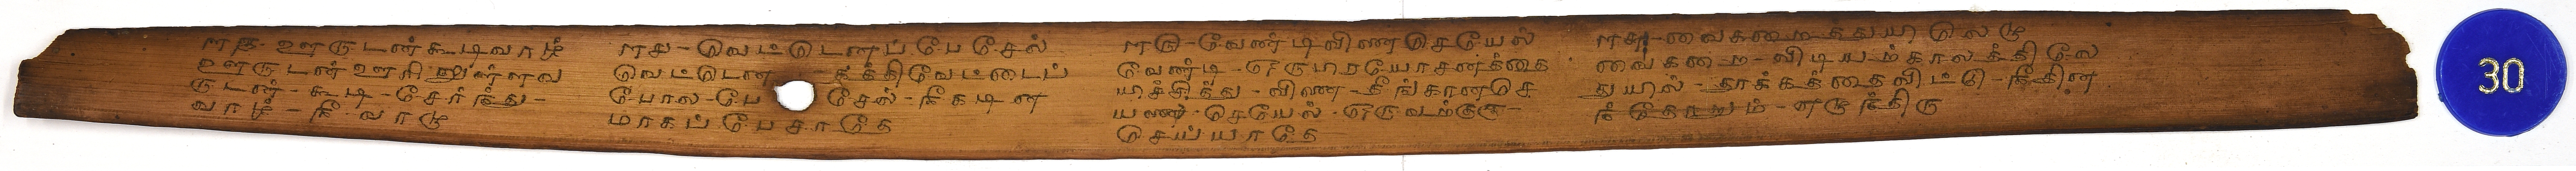 ஊருடன்கூடிவாழ்
ஊருடன் ஊரிலுள்ளவ
ருடன் - கூடி - சேர்ந்து -
வாழ் - நீ வாழு
வெட்டெனப்பேசேல்
வெட்டென கத்திவெட்டைப்
போல - பேசேல் - நீகடின
மாகப்பேசாதே
வேண்டிவினைசெயேல்
வேண்டி - ஒருபிரயோசனத்தை
யிச்சித்து - வினை - தீங்கானசெ
யலை - செயேல் - ஒருவற்கும் -
செய்யாதே
வைகறைத்துயிலெழு
வைகறை - விடியம்காலத்திலே
துயில் - தூக்கத்தைவிட்டு - நீதின
ந்தோறும் - எழுந்திரு
30